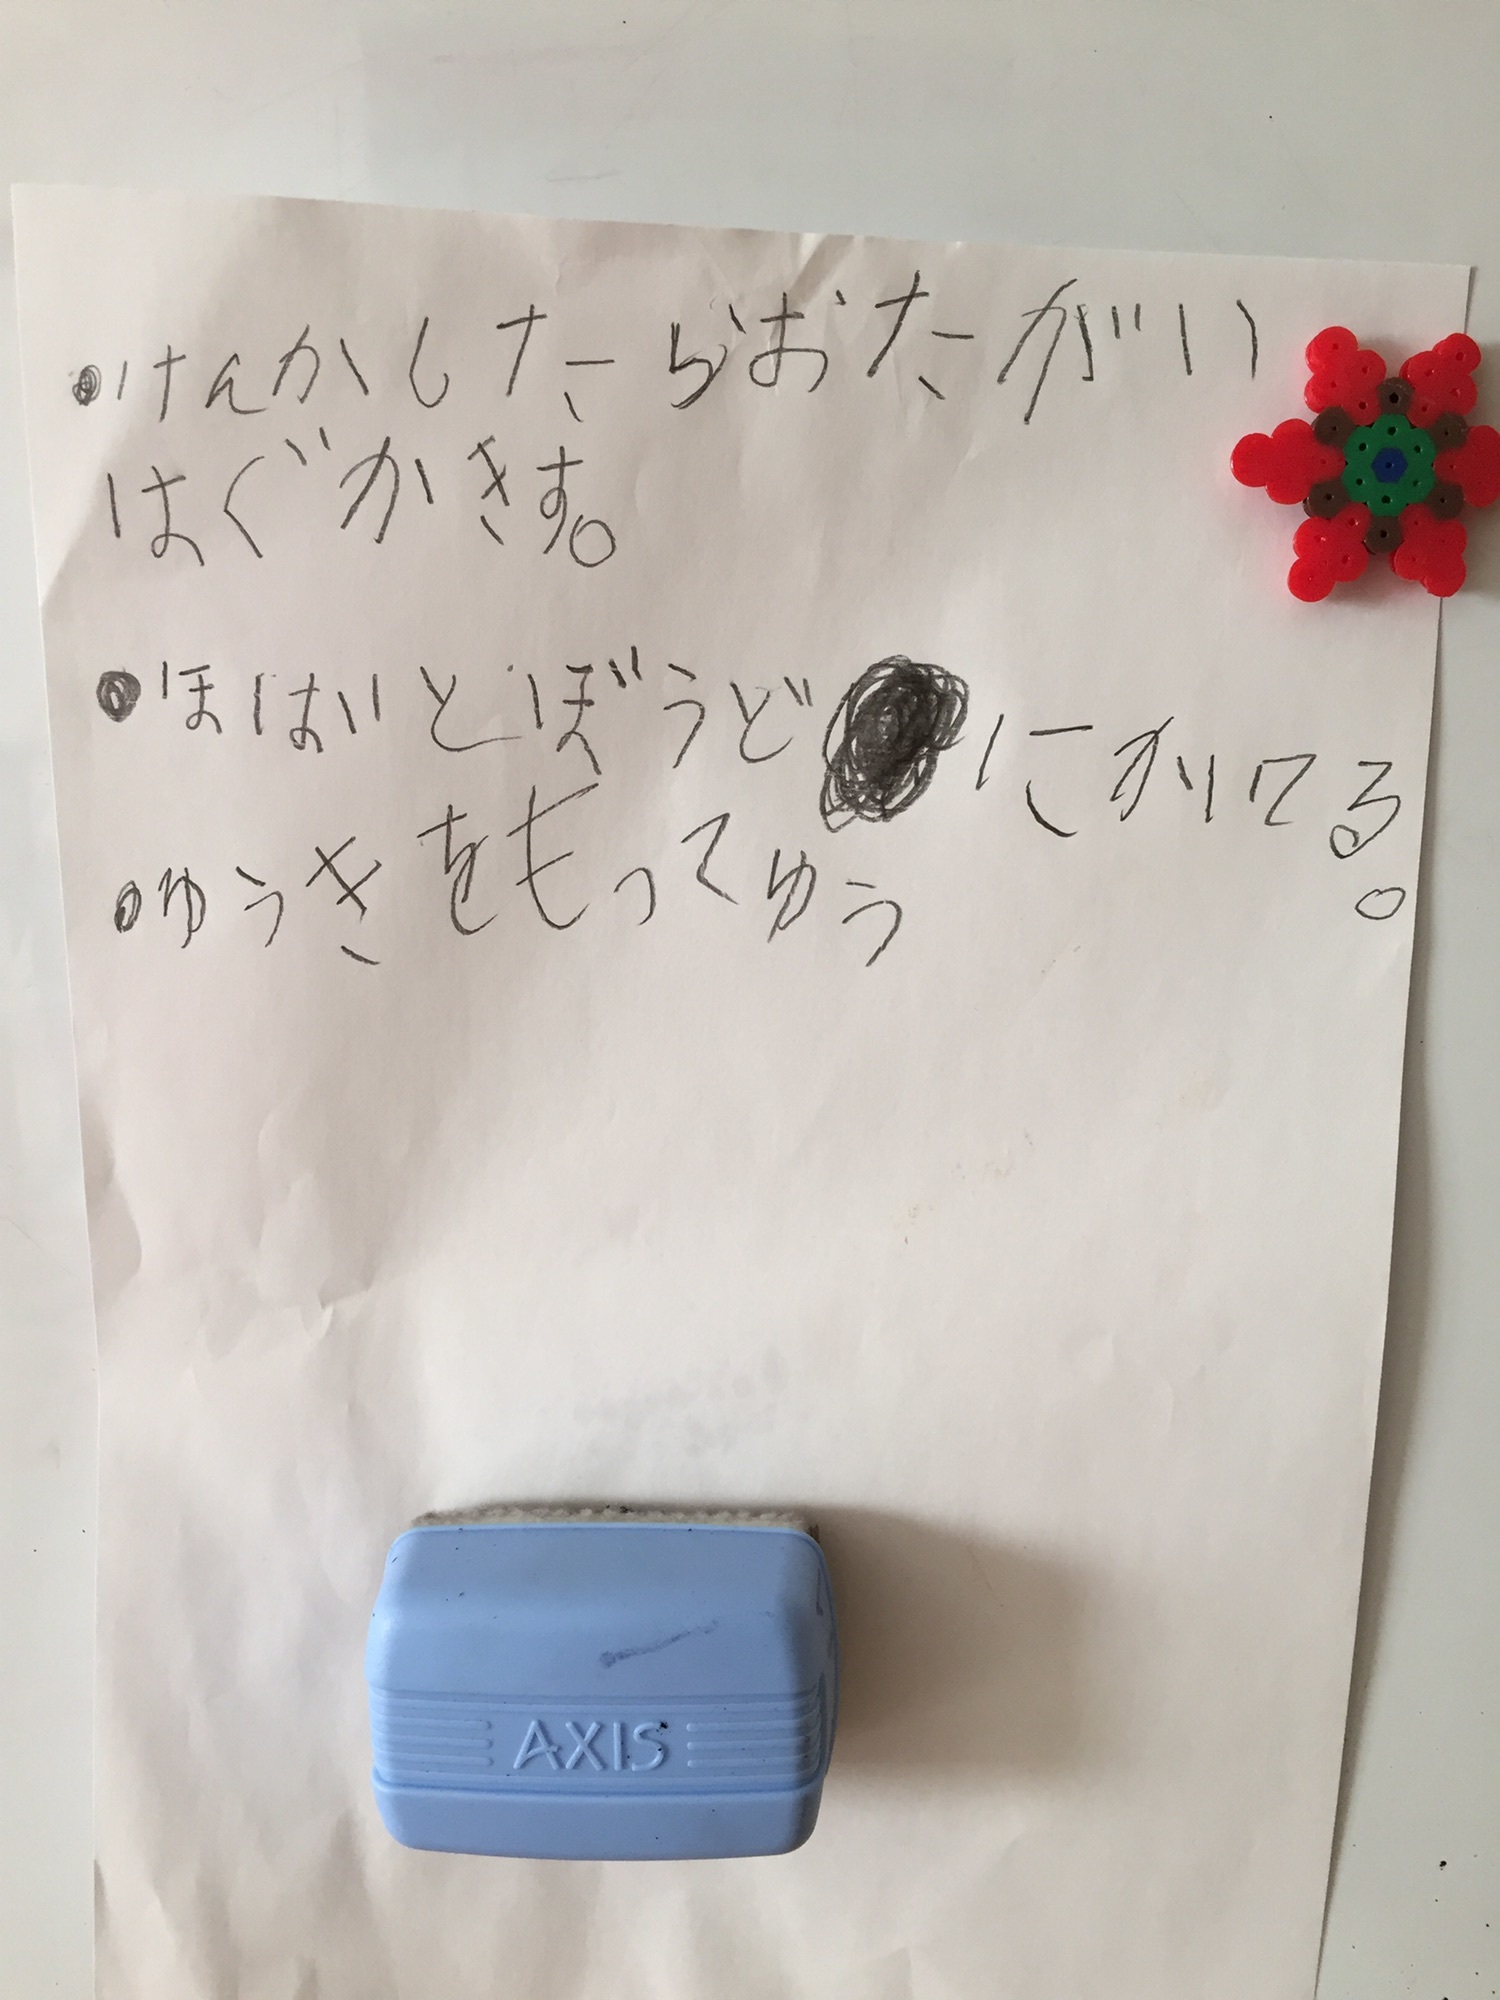 ●けんかしたらおたがい
はぐかきす。
●ほはいとぼうどにかいてる。
●ゆうきをもってゆう
AXIS